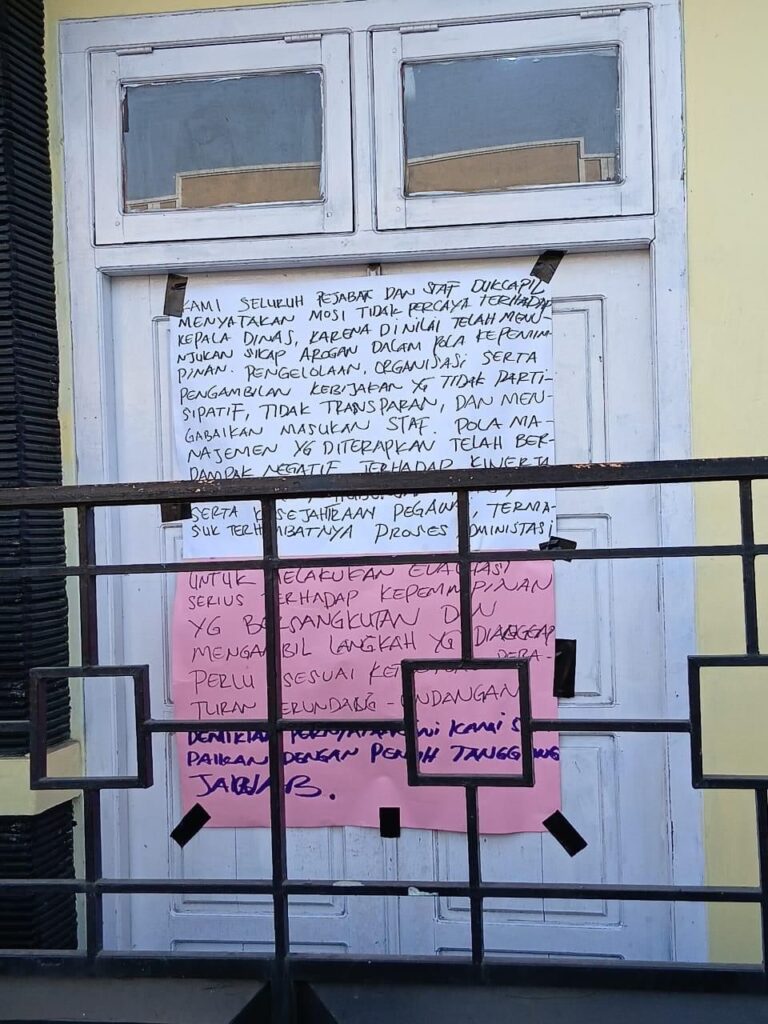 KAMI SELURUH PEJABAT DAN STAF DUKCAPIL
MENYATAKAN MOSI TIDAK PERCAYA TERHADAP
KEPALA DINAS, KARENA DINILAI TELAH MENU-
NJUKAN SIKAP AROGAN DALAM POLA KEPEMIM
PINAN. PENGELOLAAN, ORGANISASI SERTA
PENGAMBILAN KEBIJAKAN YG TIDAK PARTI-
SIPATIF, TIDAK TRANSPARAN, DAN MEN-
GABAIKAN MASUKAN STAF. POLA MA-
NAJEMEN YG DITERAPKAN TELAH BER-
DAMPAK NEGATIF TERHADAP KINERJA
SERTA KESEJAHTRAAN PEGAWAI, TERMA-
SUK TERHAMBATNYA PROSES ADMINISTASI
UNTUK MELAKUKAN EVALUASI
SERIUS TERHADAP KEPEMIMPINAN
YG BERSANGKUTAN DAN
MENGAMBIL LANGKAH YG DIANGGAP
PERLU SESUAI PERA-
TURAN PERUNDANG-UNDANGAN
DEMIKIAN PERNYATAAN INI KAMI S
PAIKAN DENGAN PENUH TANGGUNG
JAWAB.